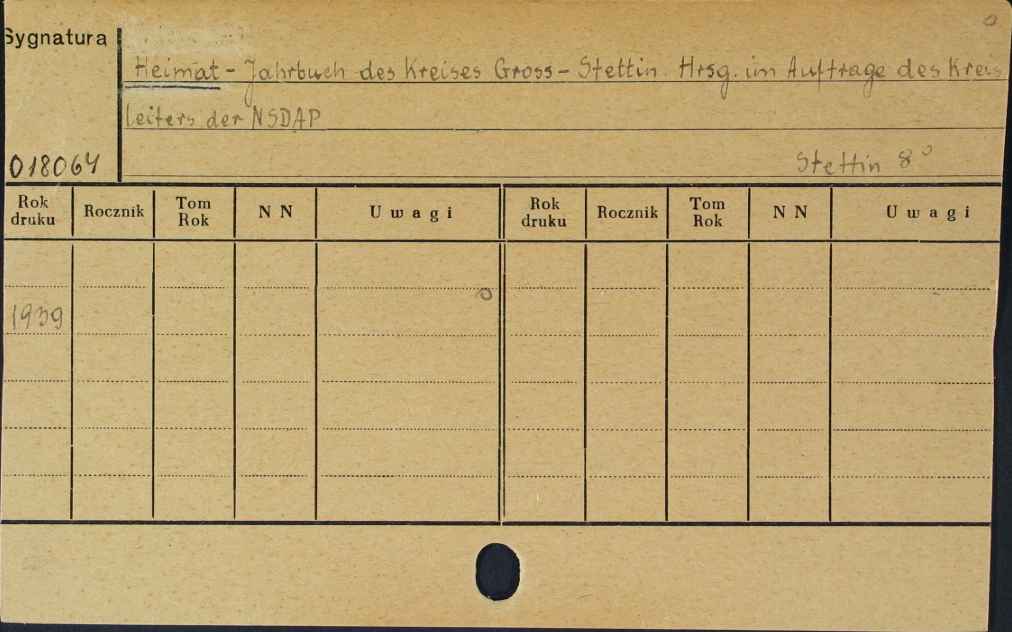 Sygnatura
Heimat - Jahrbuch des Kreises Gross - Stettin. Hrsg. im Auftrage des Kreis
leiters der NSDAP
018064
Stettin 8°
Rok druku Rocznik Tom Rok N N Uwagi Rok druku Rocznik Tom Rok N N Uwagi
1939